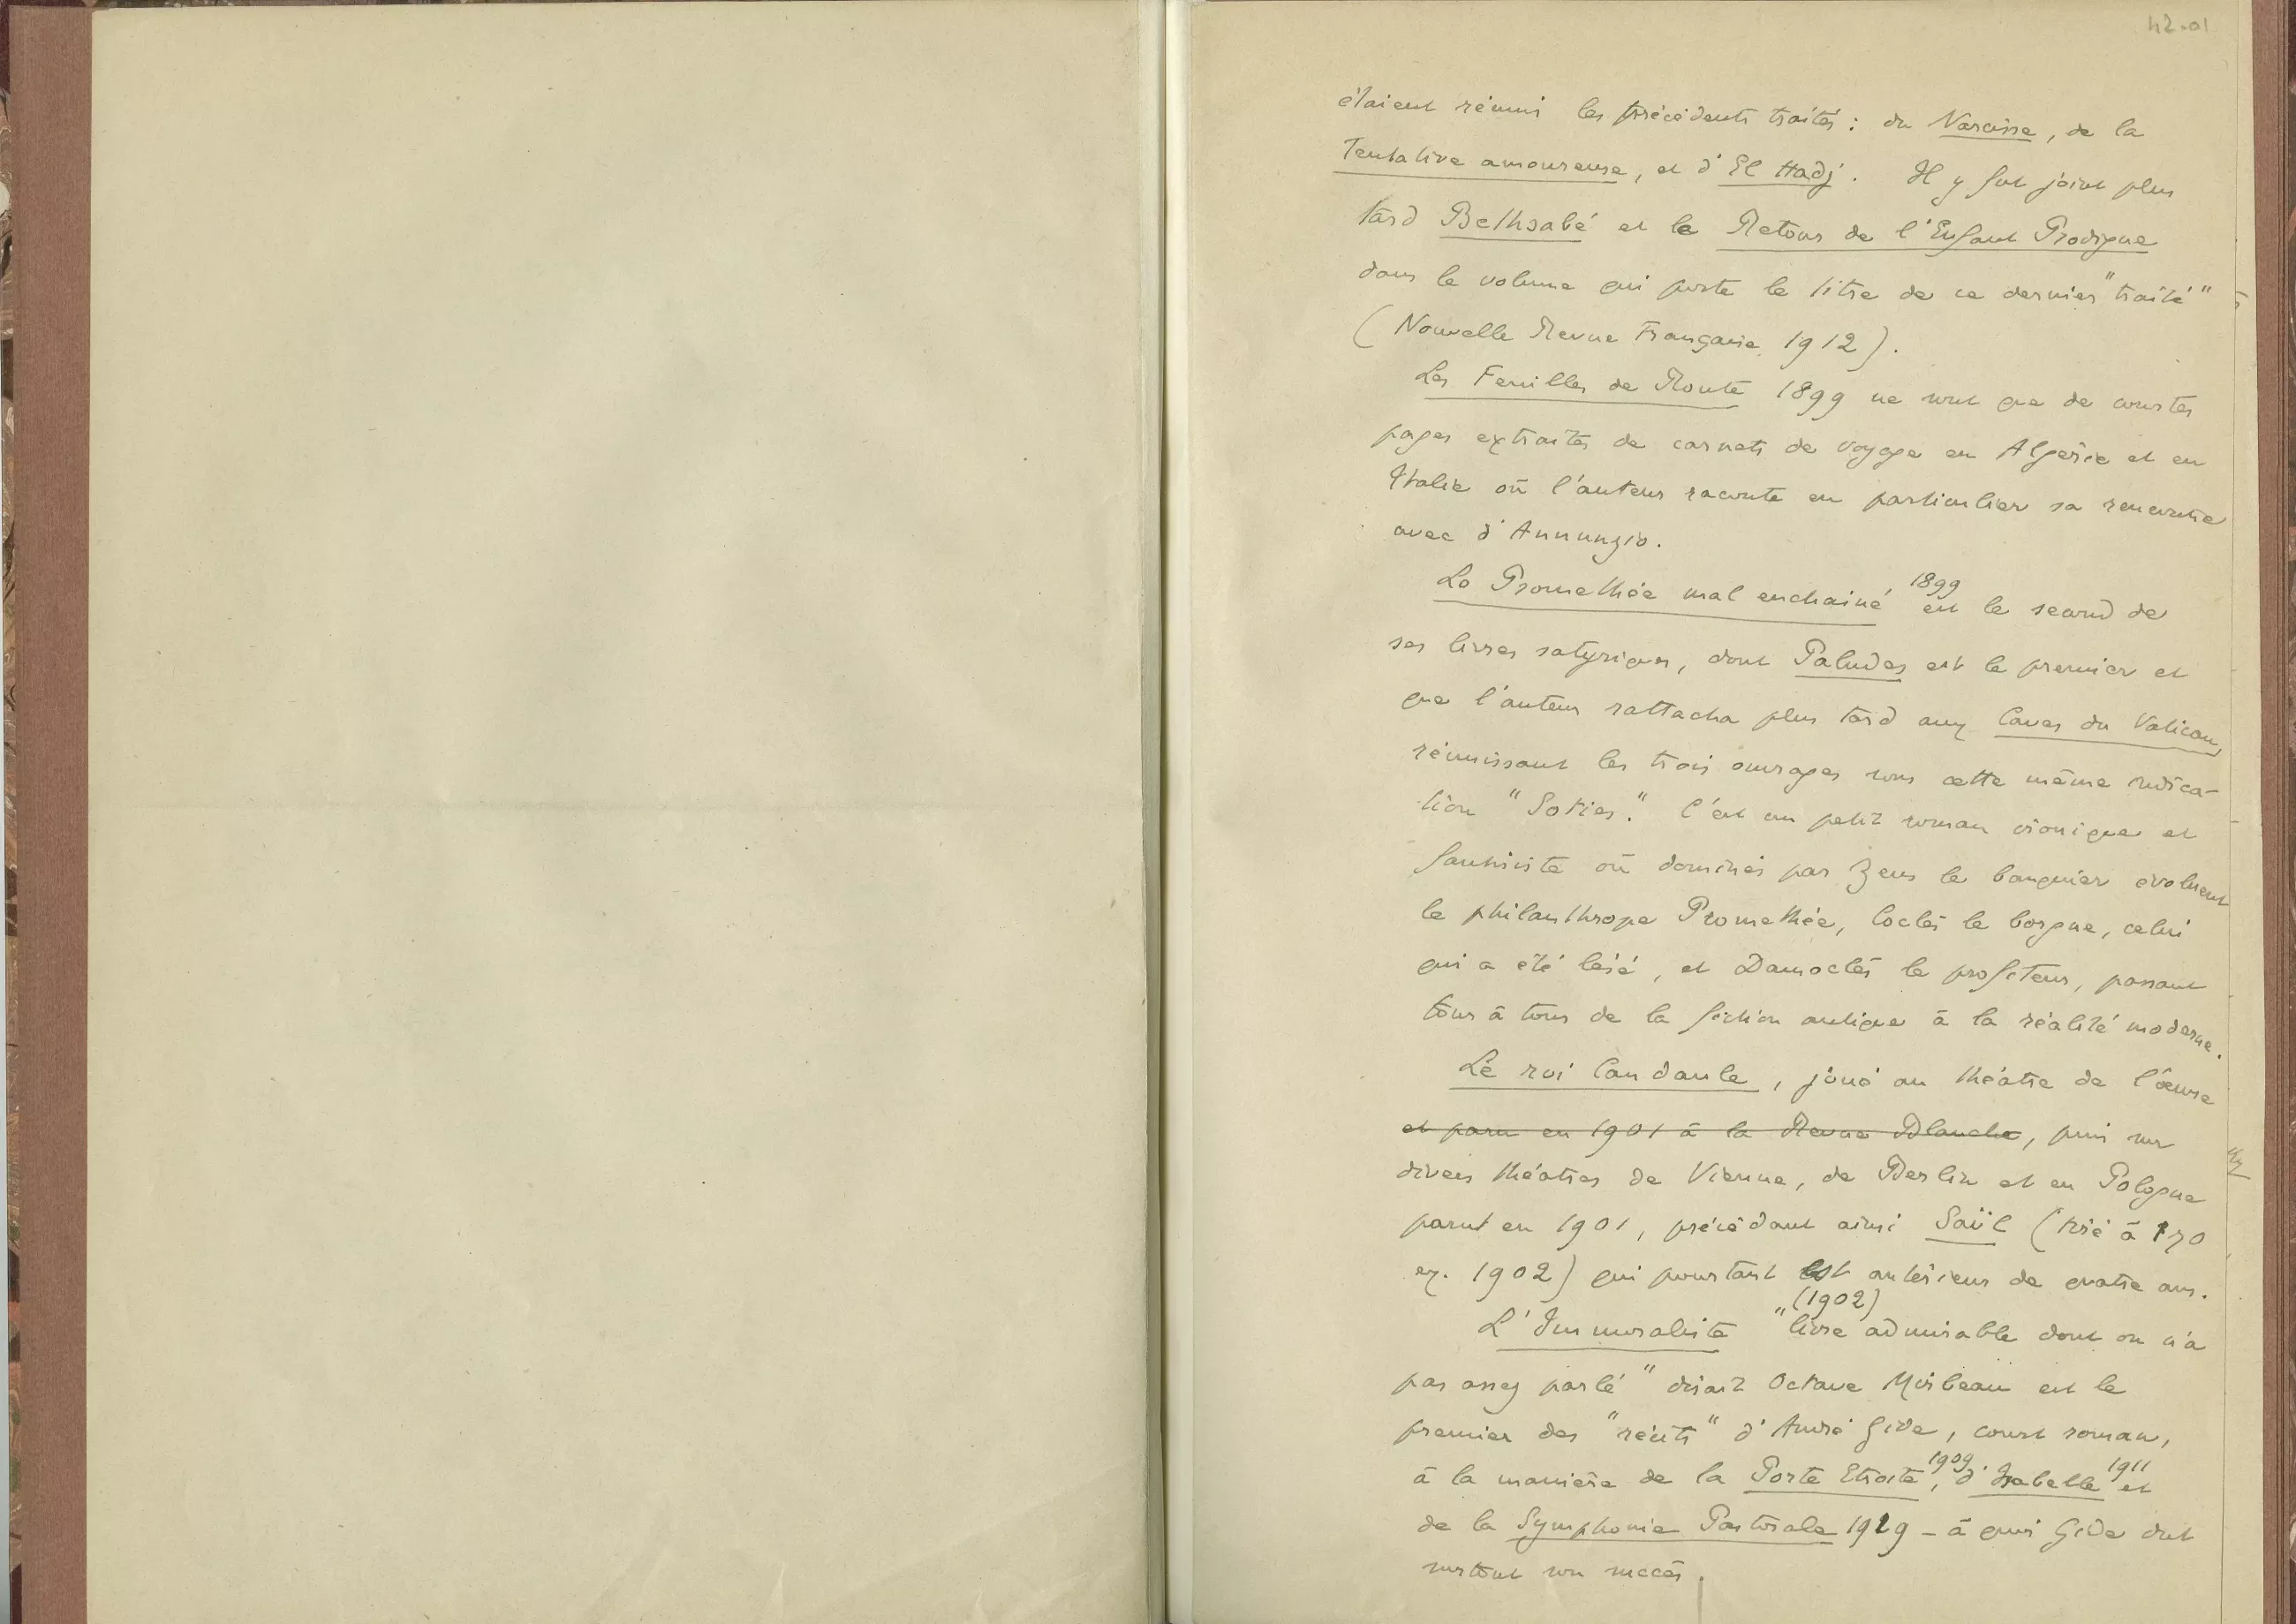 42-01
étaient réuni les précédents traités : du Narcisse, de la
Tentative amoureuse, et d'El Hadj. Il y fut joint plus
tard Bethsabé et le Retour de l'Enfant Prodigue
dans le volume qui porte le titre de ce dernier "traité"
(Nouvelle Revue Française 1912).
Les Feuilles de Route 1899 ne sont que de courtes
pages extraites de carnets de voyage en Algérie et en
Italie où l'auteur raconte en particulier sa rencontre
avec d'Annunzio.
Le Promethée mal enchainé 1899 est le second de
ses livres satyriques, dont Paludes est le premier et
que l'auteur rattacha plus tard aux Caves du Vatican,
réunissant les trois ouvrages sous cette même indica-
tion "Soties". C'est un petit roman ironique et
fantaisiste où dominés par Zeus le banquier évoluent
le philanthrope Promethée, Coclès le borgne, celui
qui a été lésé, et Damoclès le profiteur, passant
tour à tour de la fiction antique à la réalité moderne.
Le roi Candaule, joué au théatre de l'œuvre
et paru en 1901 à la Revue Blanche, puis sur
divers théatres de Vienne, de Berlin et en Pologne
parut en 1901, précédant ainsi Saül (tiré à 170
ex. 1902) qui pourtant est antérieur de quatre ans.
L'Immoraliste (1902) "livre admirable dont on n'a
pas assez parlé" disait Octave Mirbeau est le
premier des "récits" d'André Gide, court roman,
à la manière de la Porte Etroite 1909, d'Isabelle 1911 et
de la Symphonie Pastorale 1919 – à qui Gide dut
surtout son succès.